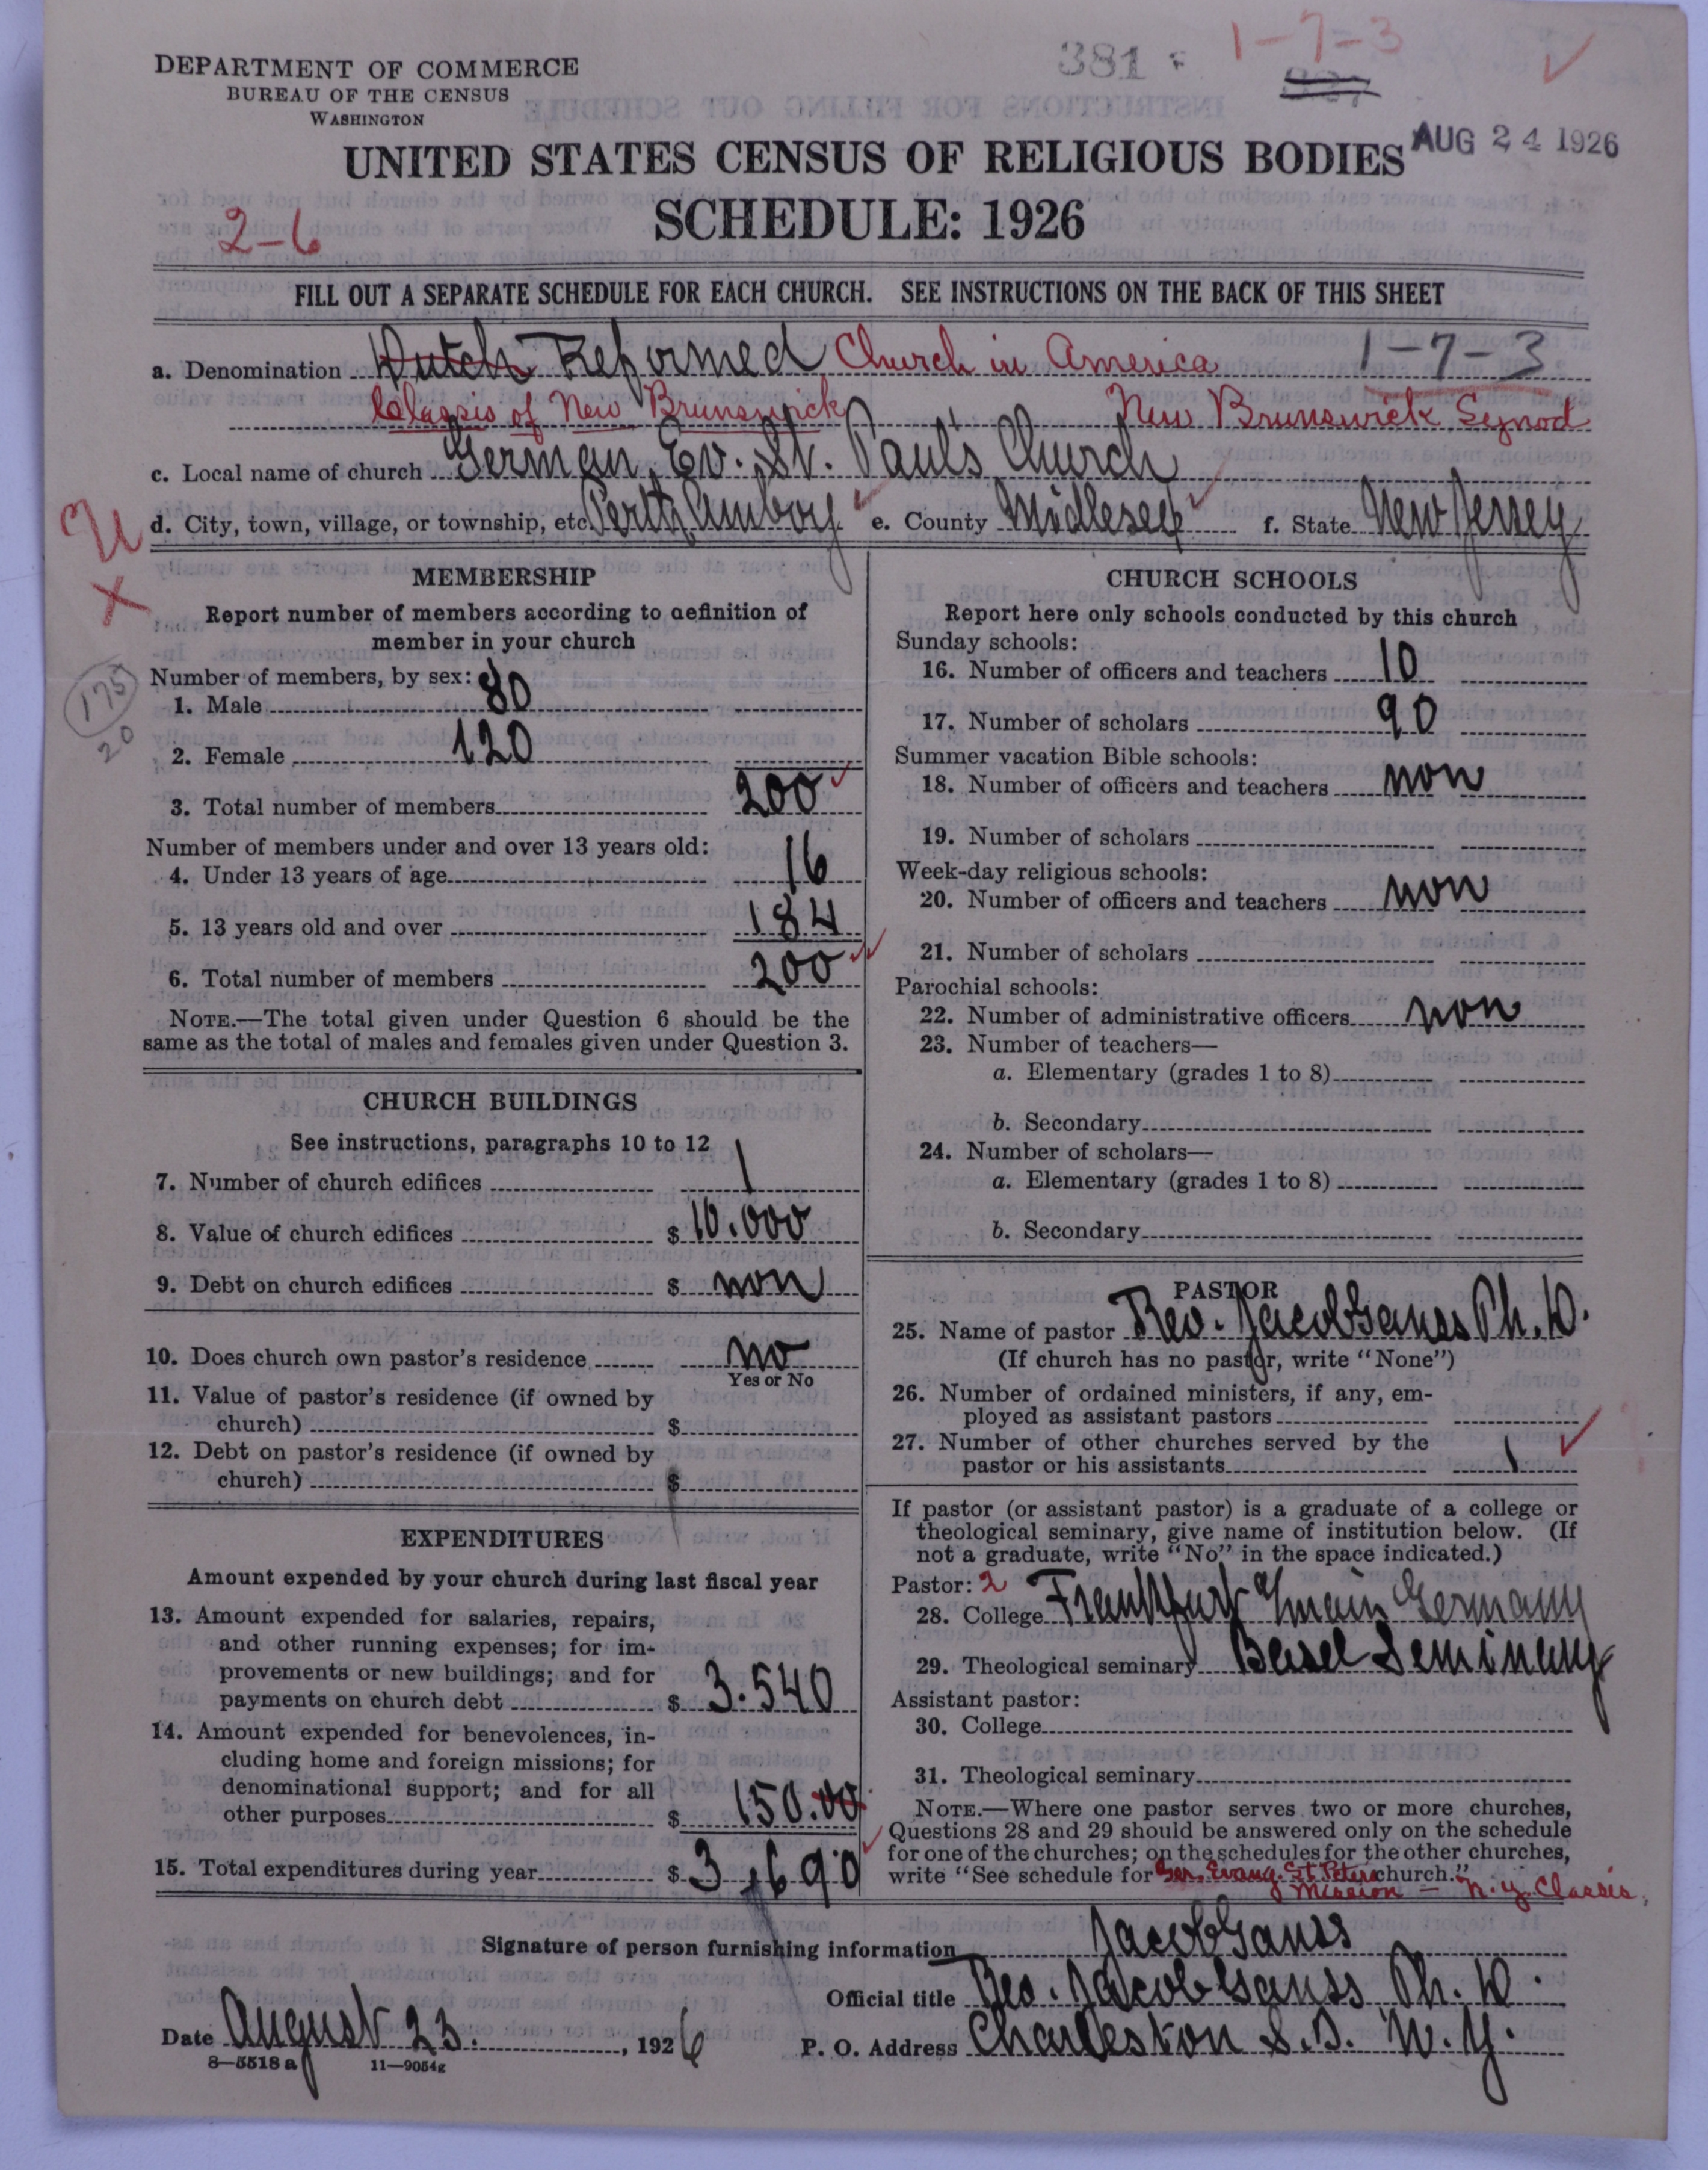 381
1-7-3
DEPARTMENT OF COMMERCE
BUREAU OF THE CENSUS
WASHINGTON
AUG 24 1926
UNITED STATES CENSUS OF RELIGIOUS BODIES
SCHEDULE: 1926
2-6
FILL OUT A SEPARATE SCHEDULE FOR EACH CHURCH. SEE INSTRUCTIONS ON THE BACK OF THIS SHEET
a. Denomination Dutch Reformed Church in America 1-7-3
Classis of New Brunswick New Brunswick Synod
c. Local name of church German Ev. St. Paul's Church
d. City, town, village, or township, etc. Perth Amboy e. County Midlesex f. State New Jersey
MEMBERSHIP
Report number of members according to definition of
member in your church
Number of members, by sex:
1. Male 80
175
20
2. Female 120
3. Total number of members 200
Number of members under and over 13 years old:
4. Under 13 years of age 16
5. 13 years old and over 184
6. Total number of members 200
NOTE.—The total given under Question 6 should be the
same as the total of males and females given under Question 3.
CHURCH BUILDINGS
See instructions, paragraphs 10 to 12
7. Number of church edifices 1
8. Value of church edifices $ 10.000
9. Debt on church edifices $ non
10. Does church own pastor's residence no
Yes or No
11. Value of pastor's residence (if owned by
church) $
12. Debt on pastor's residence (if owned by
church) $
EXPENDITURES
Amount expended by your church during last fiscal year
13. Amount expended for salaries, repairs,
and other running expenses; for im-
provements or new buildings; and for
payments on church debt $ 3.540
14. Amount expended for benevolences, in-
cluding home and foreign missions; for
denominational support; and for all
other purposes $ 150.00
15. Total expenditures during year $ 3,690
CHURCH SCHOOLS
Report here only schools conducted by this church
Sunday schools:
16. Number of officers and teachers 10
17. Number of scholars 90
Summer vacation Bible schools:
18. Number of officers and teachers non
19. Number of scholars
Week-day religious schools:
20. Number of officers and teachers non
21. Number of scholars
Parochial schools:
22. Number of administrative officers non
23. Number of teachers—
a. Elementary (grades 1 to 8)
b. Secondary
24. Number of scholars—
a. Elementary (grades 1 to 8)
b. Secondary
PASTOR
25. Name of pastor Rev. Jacob Ganss Ph. D.
(If church has no pastor, write "None")
26. Number of ordained ministers, if any, em-
ployed as assistant pastors
27. Number of other churches served by the
pastor or his assistants 1
If pastor (or assistant pastor) is a graduate of a college or
theological seminary, give name of institution below. (If
not a graduate, write "No" in the space indicated.)
Pastor: 2
28. College Frankfurt Germany
29. Theological seminary Basel Seminary
Assistant pastor:
30. College
31. Theological seminary
NOTE.—Where one pastor serves two or more churches,
Questions 28 and 29 should be answered only on the schedule
for one of the churches; on the schedules for the other churches,
write "See schedule for Ger. Evang. St Peters church."
Mission — N.Y. Classis.
Signature of person furnishing information Jacob Ganss
Official title Rev. Jacob Ganss Ph. D.
Date August 23. , 1926 P. O. Address Charleston S.I. N.Y.
8—5518 a 11—9054g